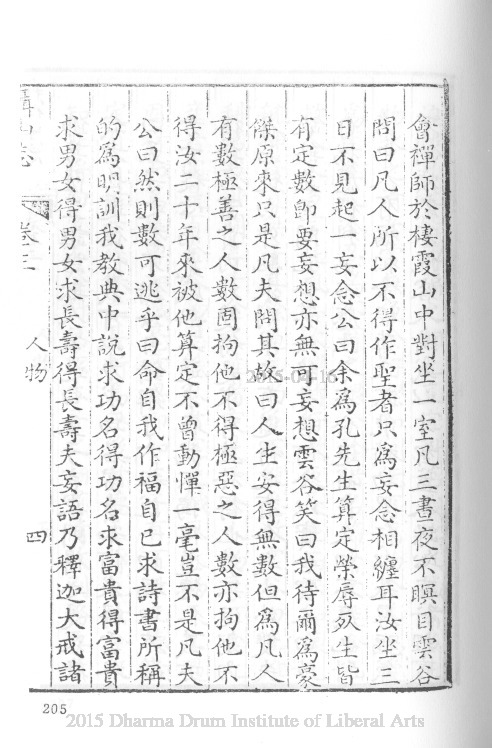 會禪師於棲霞山中對坐一室凡三晝夜不瞑目雲谷
問曰凡人所以不得作聖者只為妄念相纏耳汝坐三
日不見起一妄念公曰余為孔先生算定榮辱死生皆
有定數卽要妄想亦無可妄想雲谷笑曰我待爾為豪
傑原來只是凡夫問其故曰人生安得無數但為凡人
有數極善之人數固拘他不得極惡之人數亦拘他不
得汝二十年來被他算定不曾動憚一毫豈不是凡夫
公曰然則數可逃乎曰命自我作福自己求詩書所稱
的為明訓我教典中說求功名得功名求富貴得富貴
求男女得男女求長壽得長壽夫妄語乃釋迦大戒諸
山志
卷三
人物
四
2015-04-16
205
2015 Dharma Drum Institute of Liberal Arts